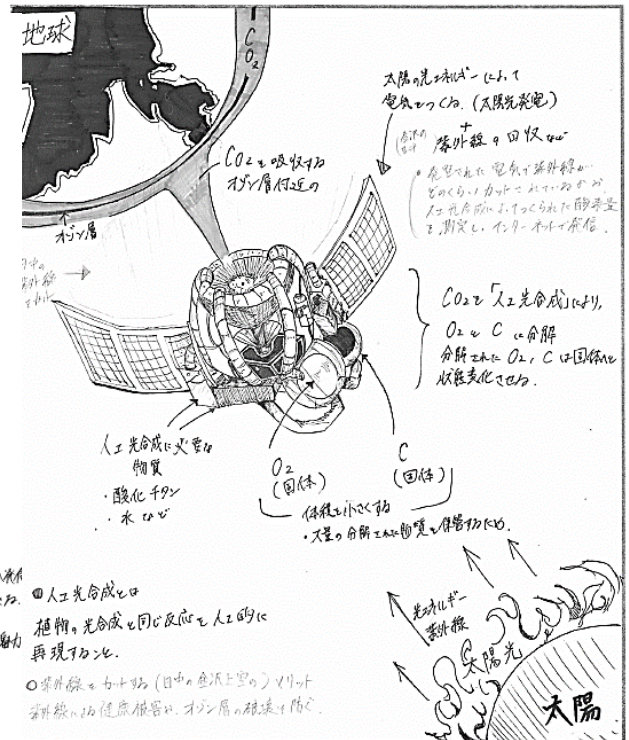 地球
CO₂
太陽の光エネルギーによって
電気をつくる。(太陽光発電)
+
紫外線の回収など
CO₂を吸収する
オゾン層付近の
オゾン層
発電された電気で紫外線が
どのくらいカットされているかや、
人工光合成によってつくられた酸素量
を測定し、インターネットで発信。
CO₂を「人工光合成」により、
O₂とCに分解
分解されたO₂,Cは固体へと
状態変化させる。
人工光合成に必要な
物質
・酸化チタン
・水など
O₂
(固体)
C
(固体)
体積を小さくする
・大量の分解された物質を保管するため。
人工光合成とは
植物の光合成と同じ反応を人工的に
再現すること。
○紫外線をカットする(日中の金沢上空の)メリット
紫外線による健康被害や、オゾン層の破壊を防ぐ。
光エネルギー
紫外線
太陽光
太陽